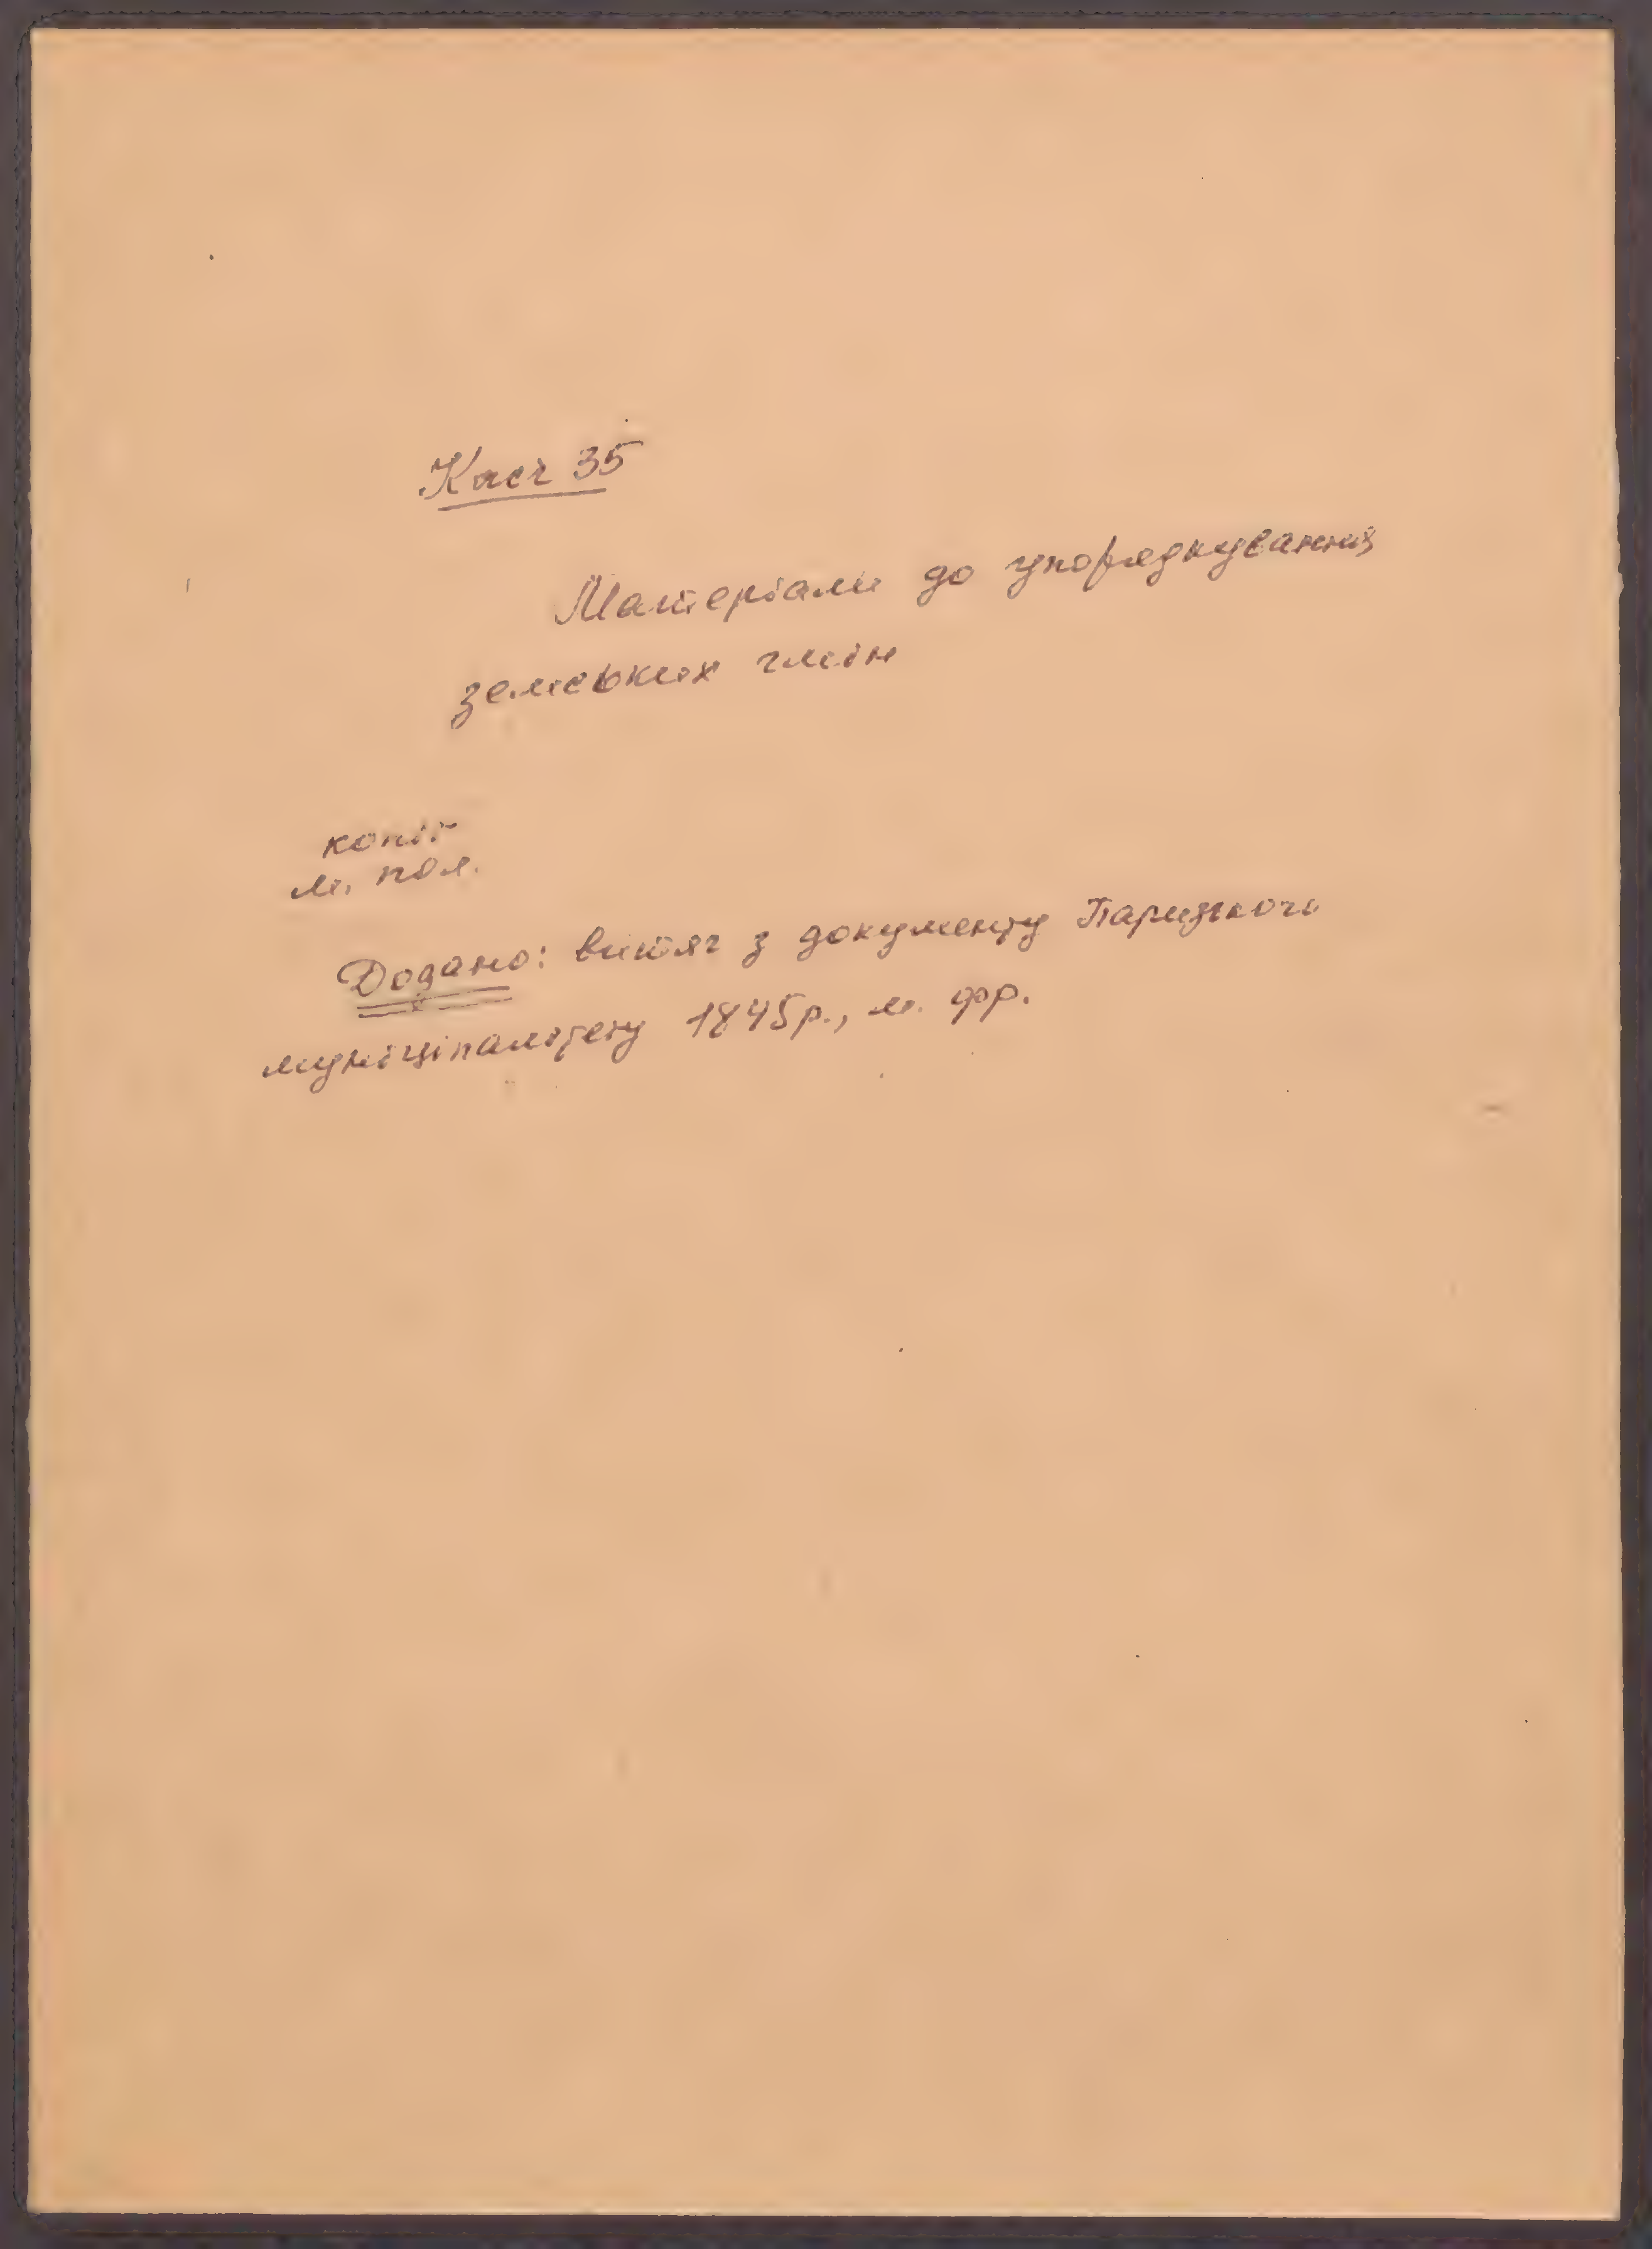 Касг 35
Матеріали до упорядкування
земських гмін
копії
м. пол.
Додано: витяг з документу Паризького
муніципалітету 1845р., м. фр.